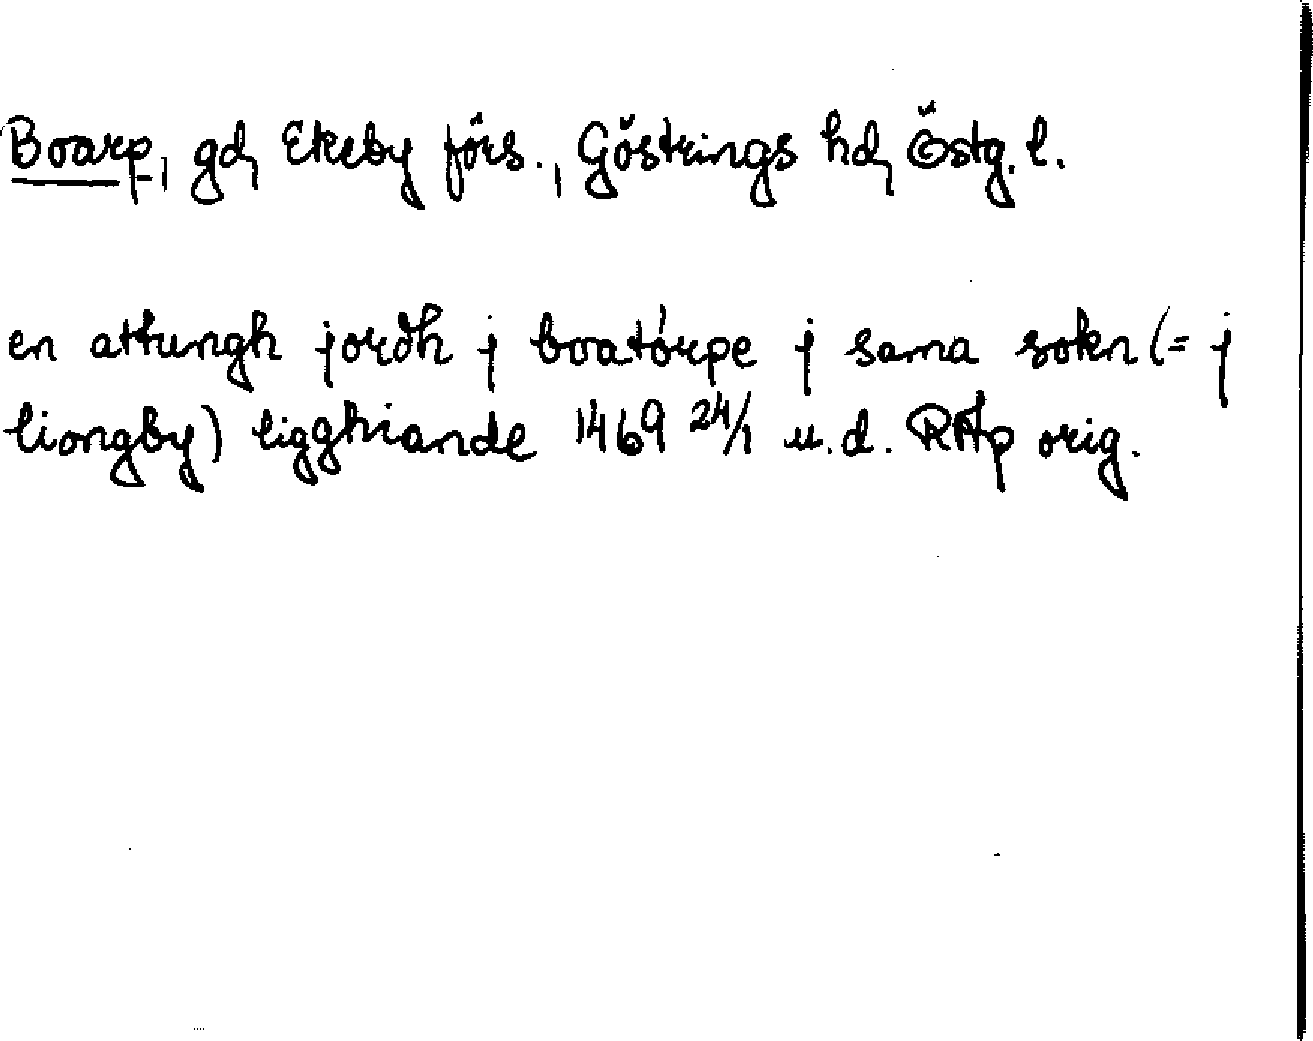 Boarp, gd, Ekeby förs., Göstrings hd, Östg. l.
en attungh jordh j boatórpe j sama sokn (= j
liongby) ligghiande 1469 24/1 u.d. RAp orig.